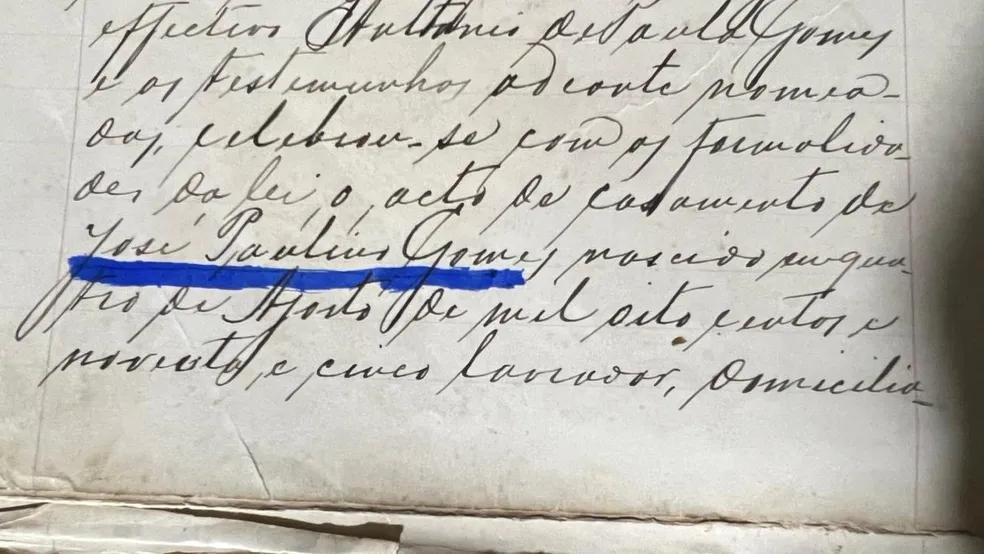 effectivo Antonio de Paula Gomes
e as testemunhas adeante nomea-
das, celebrou-se com as formalida-
des da lei o acto de casamento de
José Paulino Gomes nascido em qua-
tro de Agosto de mil oito centos e
noventa e cinco lavrador, domicilia-